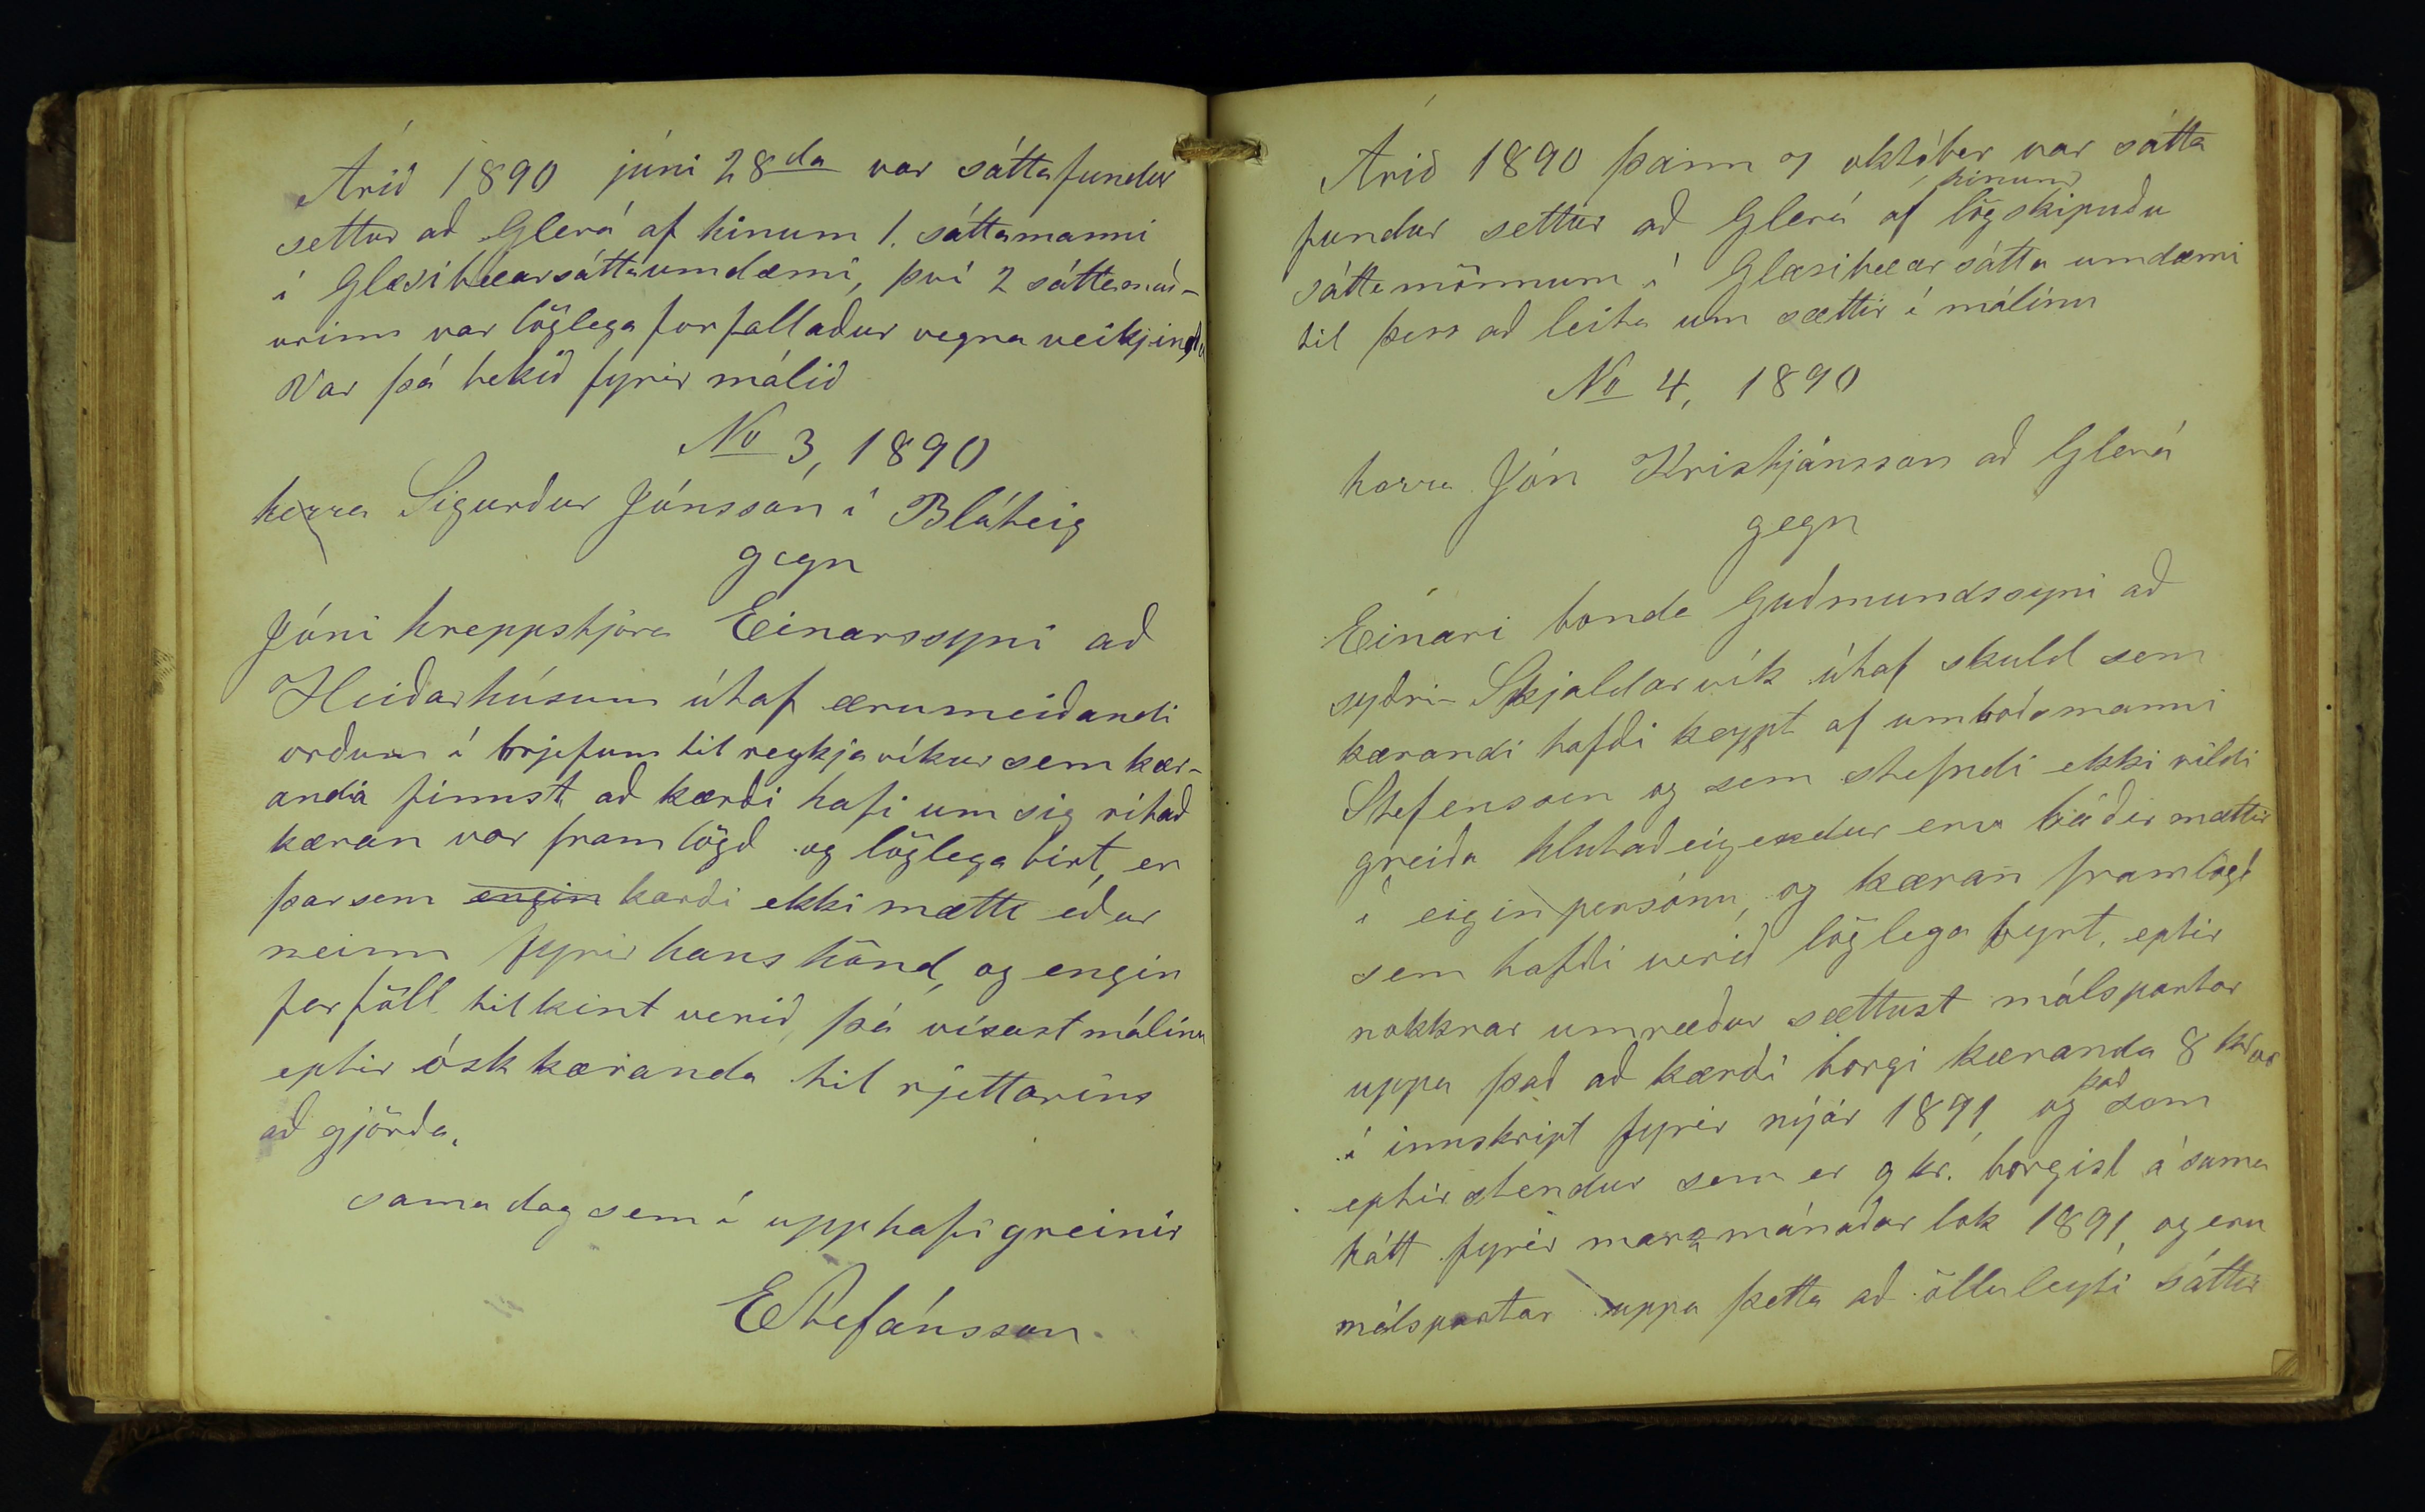 Árið 1890 júni 28da var sáttafundur
settur að Glerá af hinum 1. sáttamanni
í Glæsibæarsáttaumdæmi, því 2 sáttamað-
urinn var löglega forfallaður vegna veikjinda
Var þá tekið fyrir málið
No 3, 1890
herra Sigurður Jónsson í Bláteig
gegn
Jóni hreppstjóra Einarssyni að
Heiðarhúsum útaf ærumeiðandi
orðum í brjefum til reykjavíkur sem kær-
anda finnst að kærði hafi um sig ritað
kæran var framlögð og löglega birt, en
þarsem engin kærði ekki mætti eður
neinn fyrir hans hönd, og engin
forföll tilkint verið, þá vísast málinu
eptir ósk kæranda til rjettarins
að gjörða.
sama dag sem í upphafi greinir
EStefánsson
Árið 1890 þann 7 október var sátta
fundur settur að Glerá af hinum lögskipuðu
sáttamönnum í Glæsibæar sátta umdæmi
til þess að leita um sættir í málinu
No 4, 1890
herra Jón Kristjánsson að Glerá
gegn
Einari bonda Guðmundssyni að
syðri-Skjaldarvík útaf skuld sem
kærandi hafði keypt af umboðsmanni
Stefensen og sem stefndi ekki vildi
greiða hlutaðeigendur eru báðir mættir
í eigin persónu, og kæran framlögð
sem hafði verið löglega byrt, eptir
nokkrar umræður sættust málspartar
uppa það að kærði borgi kæranda 8 krónr
í innskript fyrir nýár 1891, og það sem
eptir stendur sem er 9 kr. borgist á sama
hátt fyrir marsmánaðar lok 1891, og eru
málspartar uppa þetta að ölluleyti sáttir